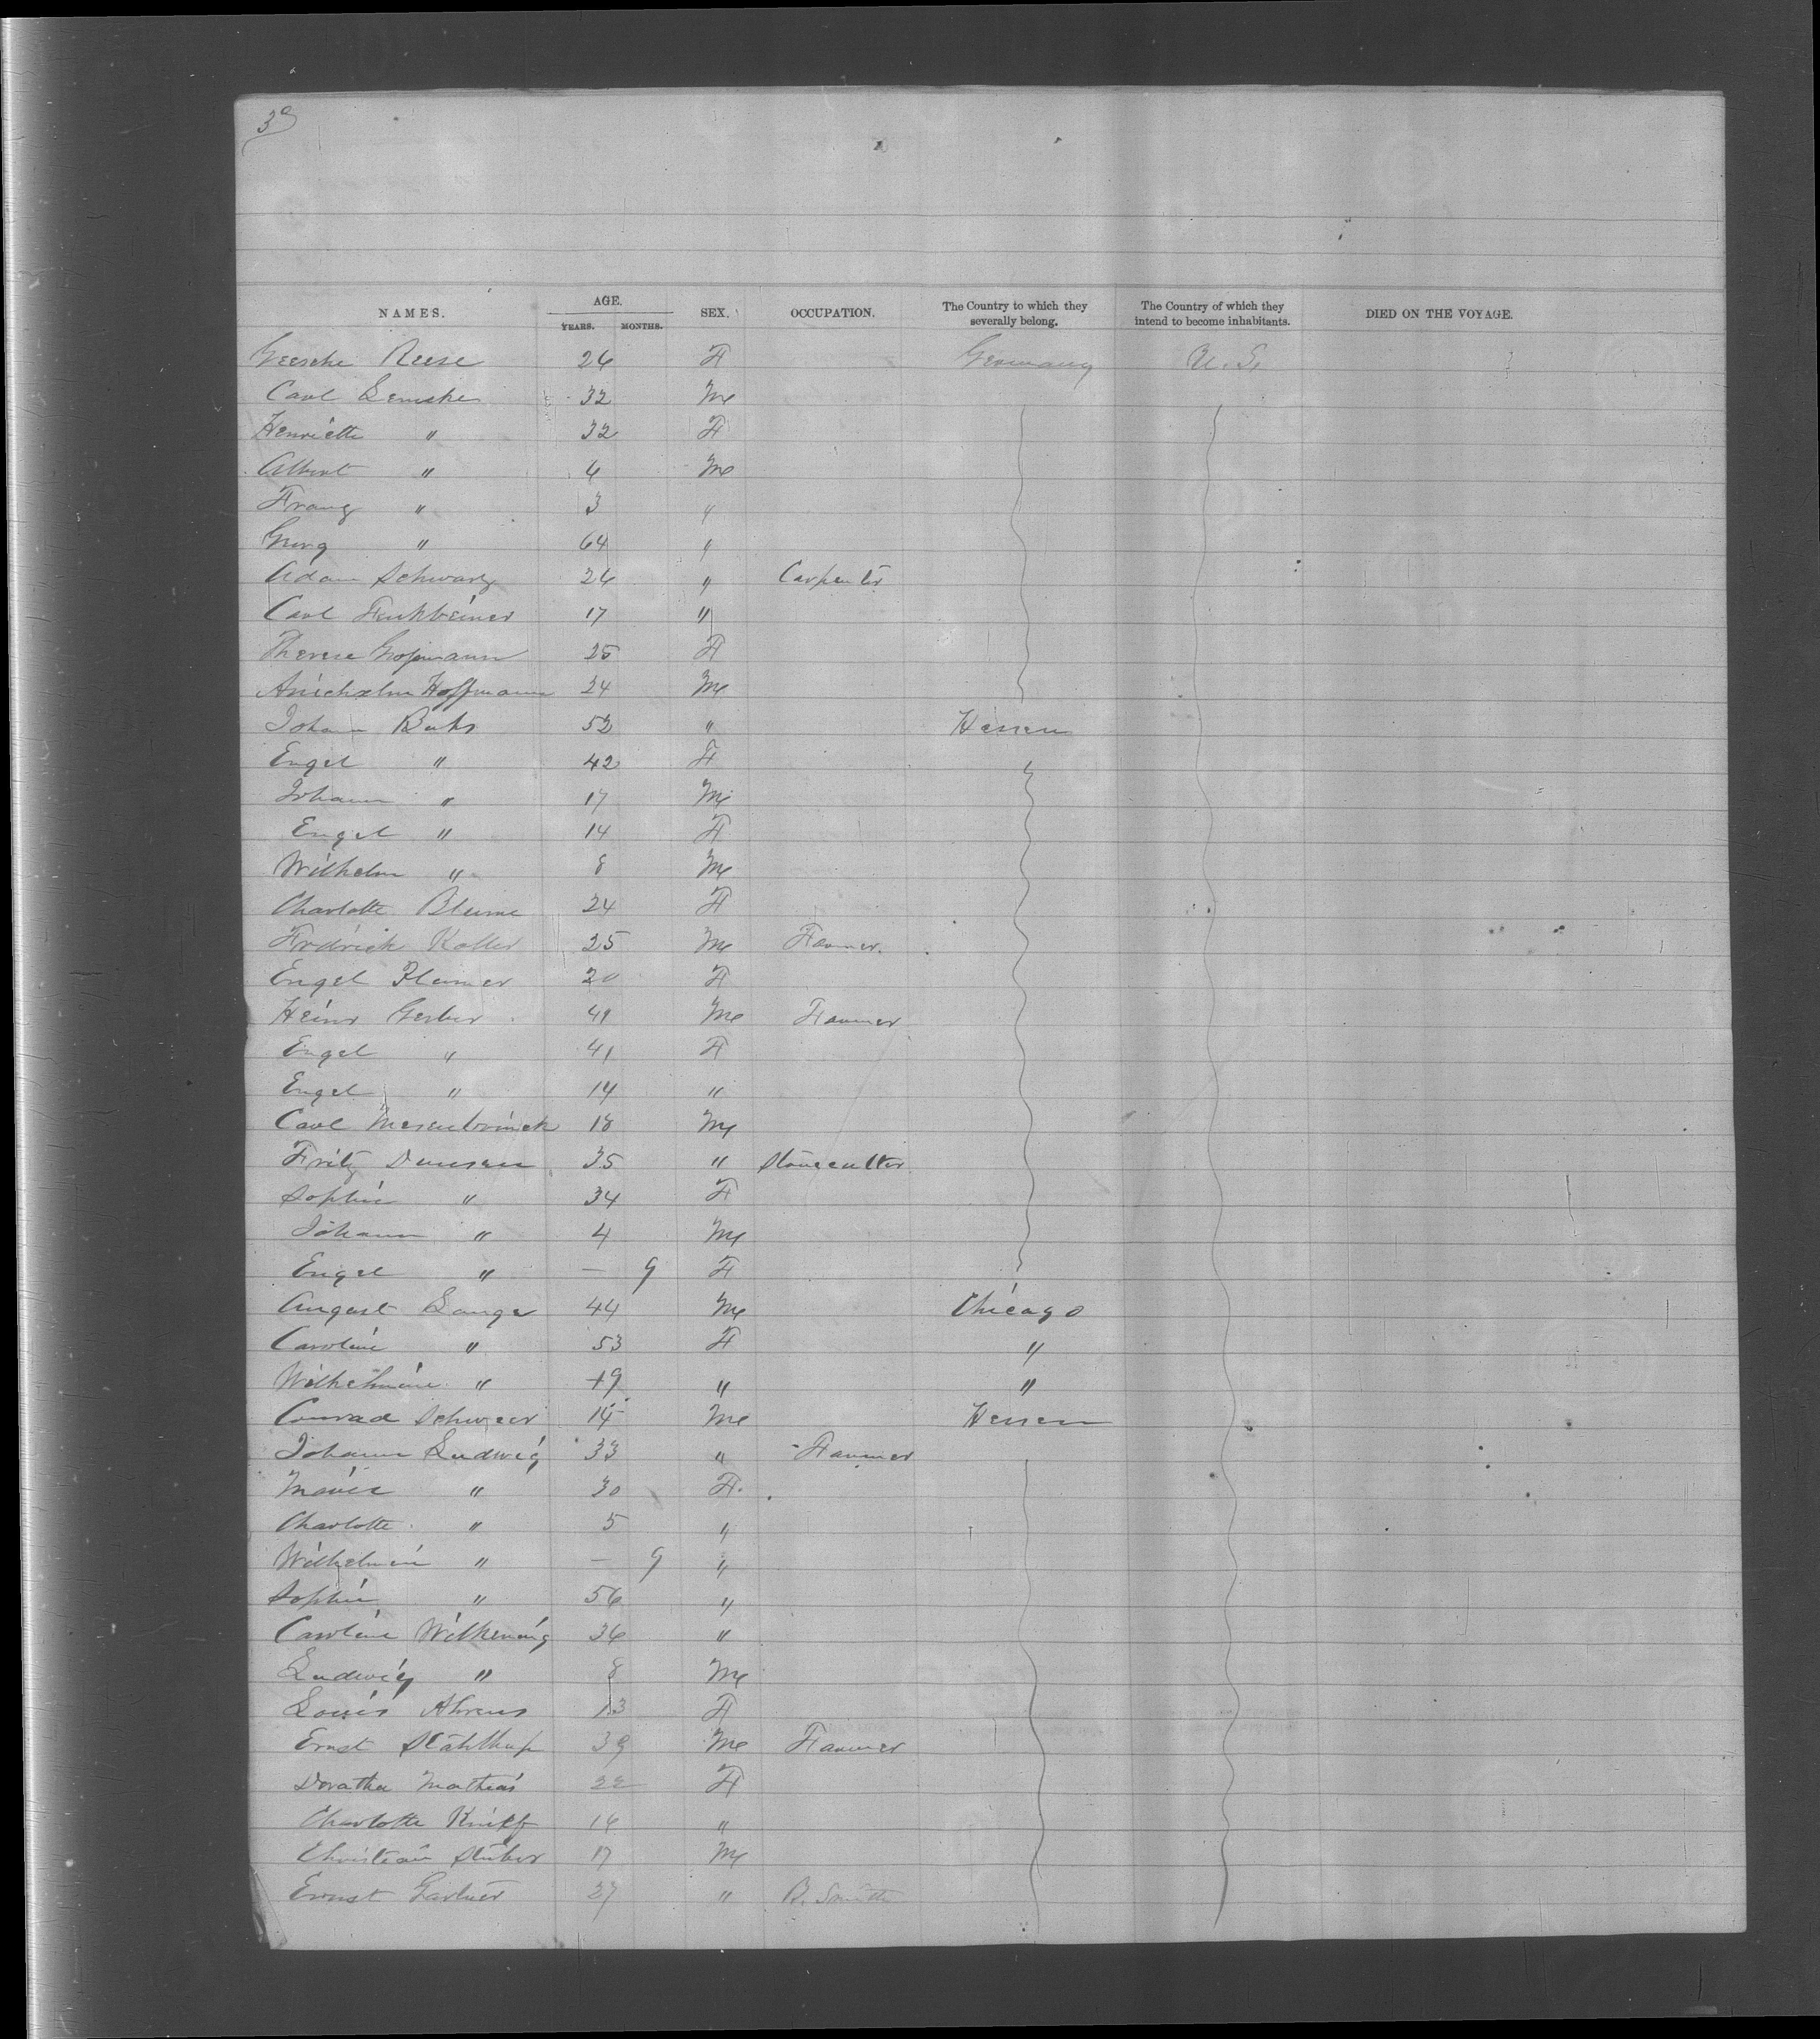 3
NAMES. AGE. YEARS. MONTHS. SEX. OCCUPATION. The Country to which they severally belong. The Country of which they intend to become inhabitants. DIED ON THE VOYAGE.
Geesche Reese 26 F Germany U.S.
Carl Lemske 32 M
Henriette " 32 F
Albert " 4 M
Franz " 3 "
Georg " 64 "
Adam Schwarz 26 " Carpenter
Carl 17 "
Therese 25 F
Hoffmann 24 M
Johann 52 " Hessen
Engel " 42 F
Johann " 17 M
Engel " 14 F
Wilhelm " 8 M
Charlotte Blume 24 F
Fredrick Koller 25 M Farmer.
Engel 20 F
Heinr Gerber 41 M Farmer
Engel " 41 F
Engel " 14 "
Carl 18 M
Fritz Dunsen 35 " Stonecutter
Sophie " 34 F
Johann " 4 M
Engel " — 9 F
August Lange 44 M Chicago
Caroline " 53 F "
Wilhelmine " 19 " "
Conrad Schweer 14 M Hessen
Johann Ludwig 33 " Farmer
Marie " 30 F.
Charlotte " 5 "
Wilhelmin " — 9 "
Sophie " 56 "
Caroline Wilkening 36 "
Ludwig " 8 M
Louis Ahrens 13 F
Ernst 39 M Farmer
Dorathea Mathias 22 F
Charlotte 16 "
Christian Stuber 17 M
Ernst 27 " B. Smith